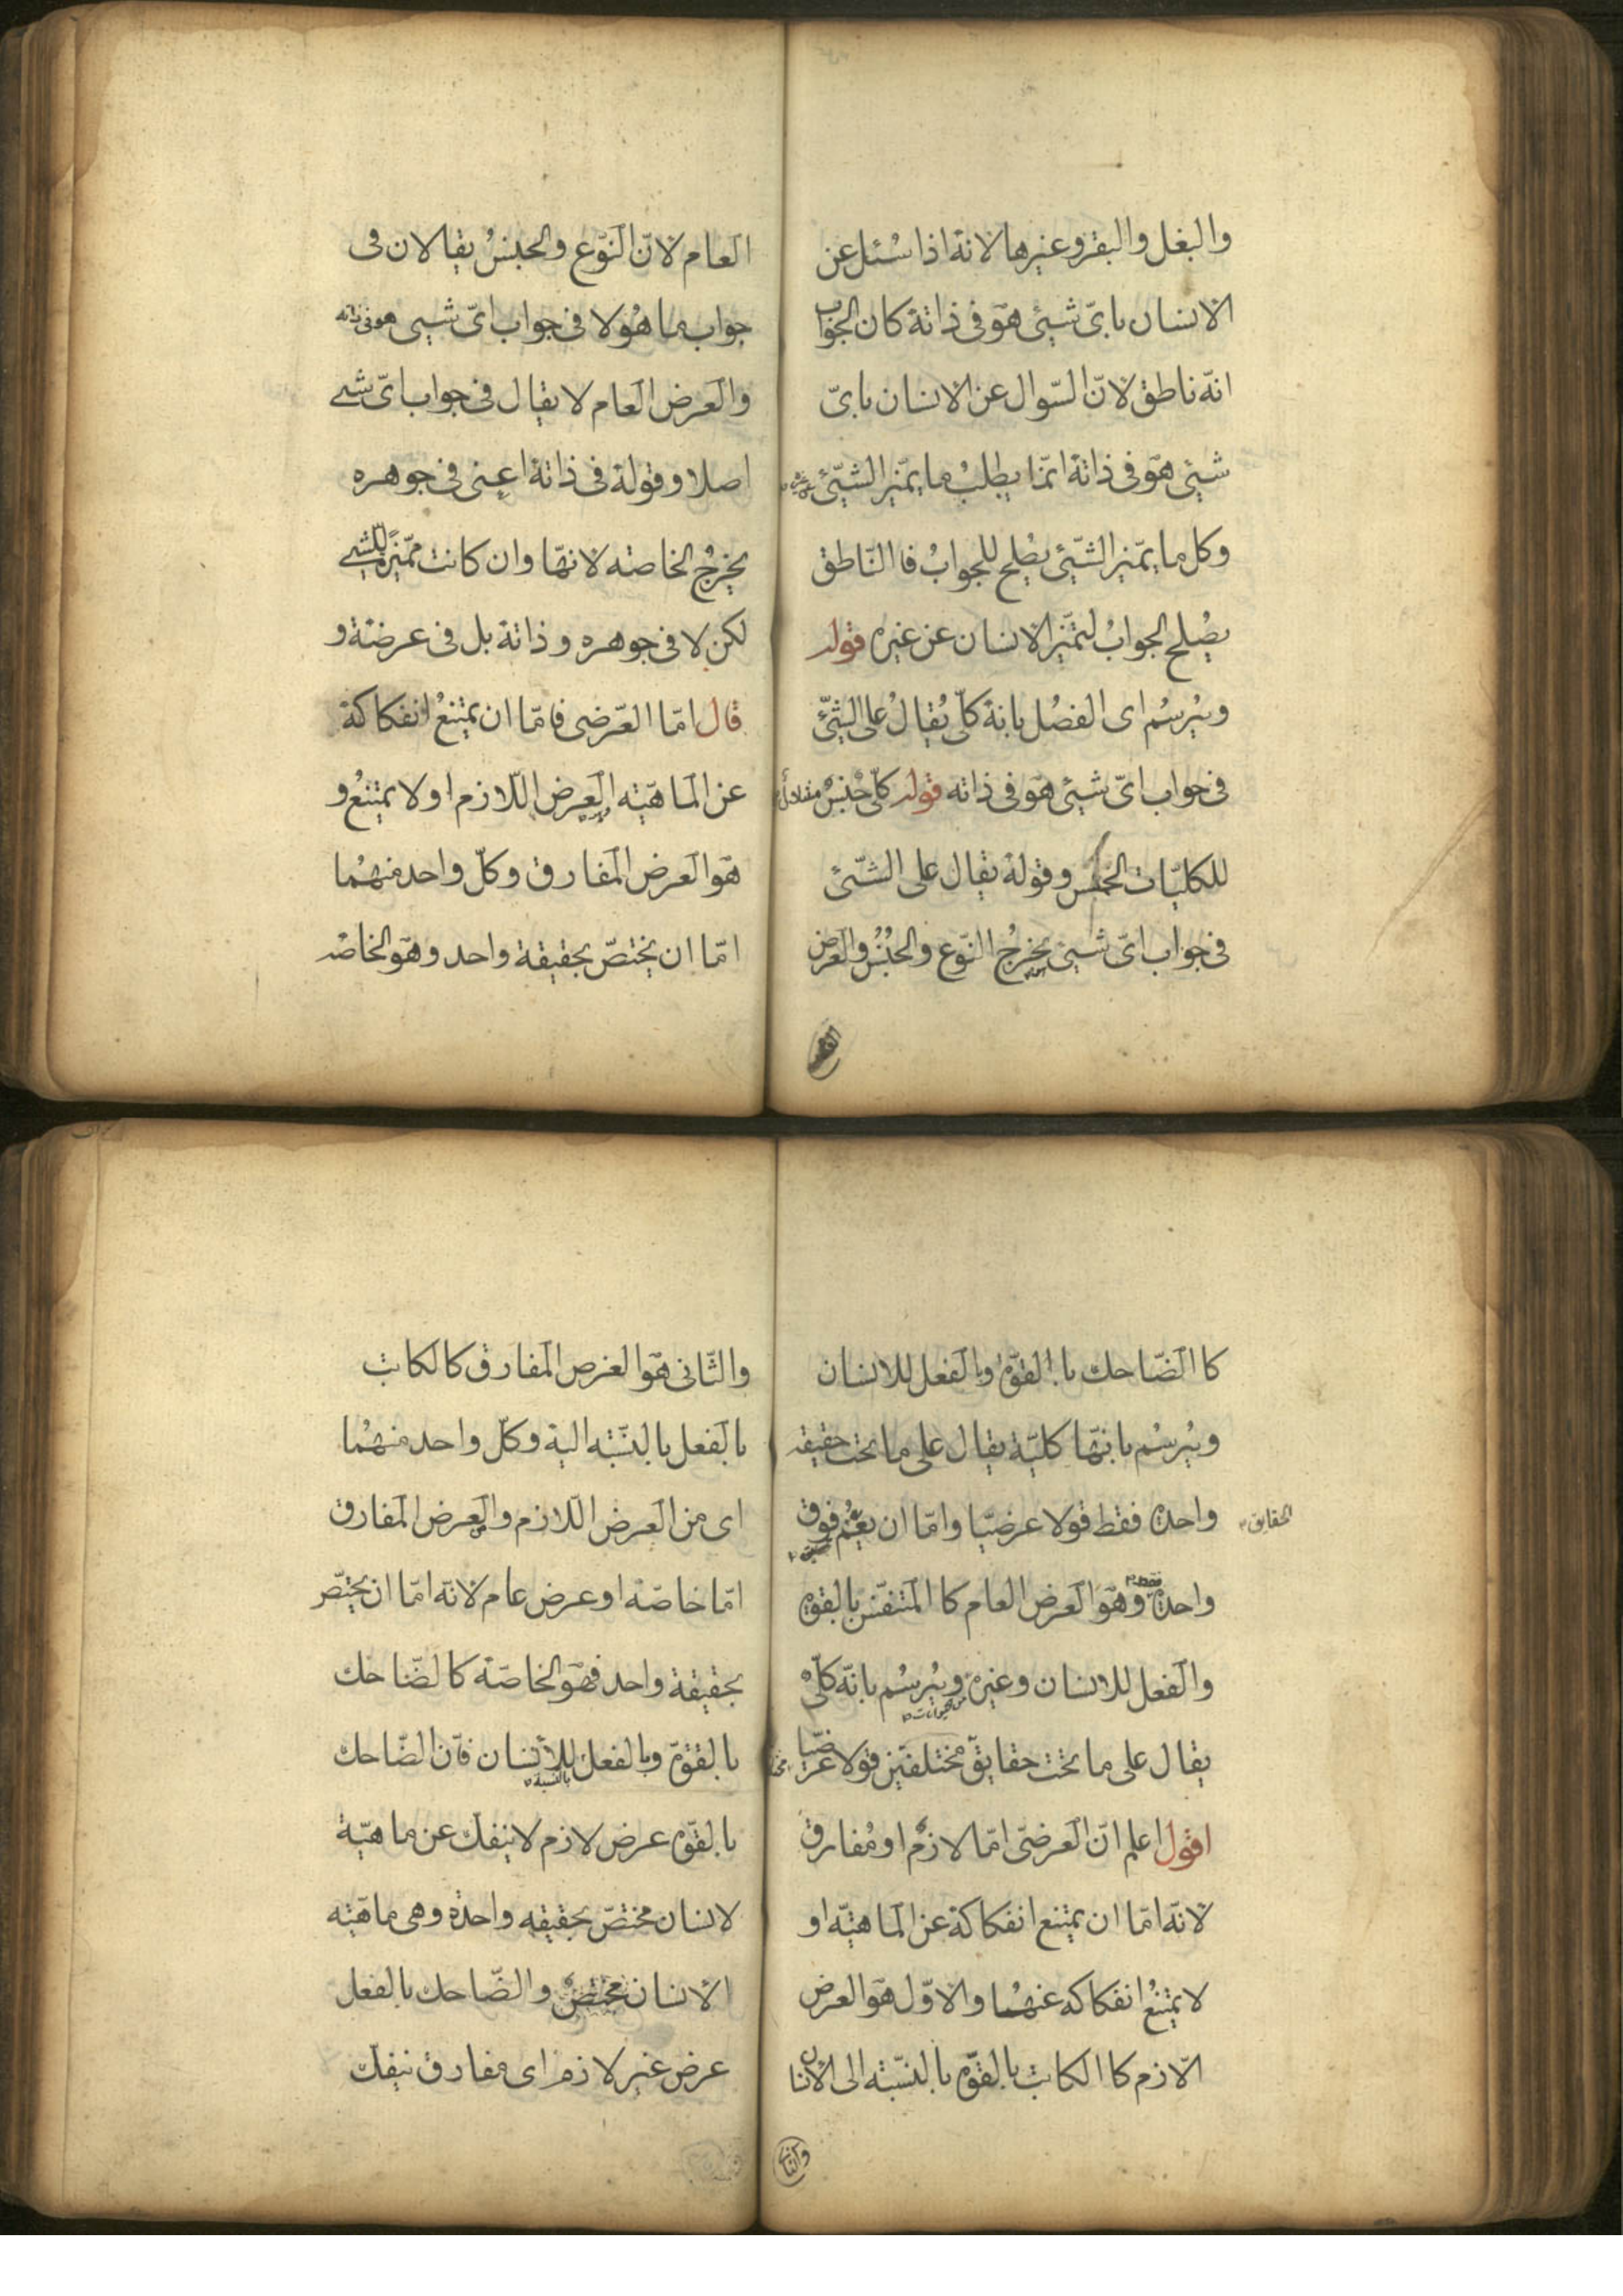 والبغل والبقر وغيرها لانة اذا سُئل عن
الانسان باىّ شيئ هوَ فى ذاتة كان الجواب
انّه ناطق لانّ السّوال عن الانسان باىّ
شيئ هوَ فى ذاتة انمّا يطلبُ ما يمّيز الشّيئ
وكل ما يمّيز الشّيئ يصْلح للجوابُ فا النّاطق
يصْلح الجوابُ لتمّيز الانسان عن غيره قوله
ويُرسُم اى الفصُل بانة كلّى يُقالُ على الشّيئ
فى جواب اىّ شيئ هوَ فى ذاته قوله كلّى جْنسْ
للكليّات الخمس وقولة يقال على الشّيئ
فى جواب اىّ شيئ يخرجُ النّوع والجنْسُ والعرض
العام لانّ النّوع والجنسُ يقالان فى
جواب ما هُو لا فى جواب اىّ شيىء هو فى ذاته
والعَرض العَام لا يقال فى جواب اىّ شىء
اصلا وقولة فى ذاتة اعنى فى جوهره
يخرجُ الخاصته لانهّا وان كانت ممّيزًا للشىء
لكن لا فى جوهره وذاتة بل فى عرضتة و
قال امّا العَرضى فامّا ان يمتنعُ انفكاكة
عن الماهيّته العرض اللّازم او لا يمتنعُ و
هوَ العَرض المفارق وكلّ واحد منهُما
امّا ان يختصّ بحقيقة واحد وهوَ الخاصّه
كا الضّاحك با القوّه وبا لفعل للانسان
ويُرسُم بانهّا كليّة يقال على ما تحت حقيقه
واحدة فقط قولا عرضيّا وامّا ان يعُمّ فوق
الحقايق
واحدة وهوَ العَرض العام كا المتنفّس بالقوه
فقط
والفعل للانسان وغيره ويُرسُم بانّه كلّى
من حيوانات
يقال على ما تحت حقايق مختلفَين قولا عرضيّا
اقول اعلم انّ العَرضىّ امّا لازمٌ او مُفارق
لانّه امّا ان يمتنع انفكاكة عن الماهيّته او
لا يمتنعُ انفكاكه عنهُما والاوّل هوَ العرض
الّازم كا الكاتب بالقوّه بالنسّبته الى الانسان
والثانى
والثّانى هوَ العَرض المفارق كالكاتب
بالفعل بالنسّبته الية وكلّ واحد منهُما
اى من العَرض اللّازم والعَرض المفارق
امّا خاصّته او عرض عام لانّه امّا ان يختصّ
بحقيقة واحد فهوَ الخاصّة كالضّاحك
بالقوّه وبالفعل للانسان فانّ الضّاحك
بالنسبة
بالقوّه عرض لازم لا ينفك عن ماهيّة
لانسان مختصّ بحقيقه واحدة وهى ماهيّته
الانسان مختصّ والضّاحك بالفعل
عرض غير لازم اى مفارق ينفك